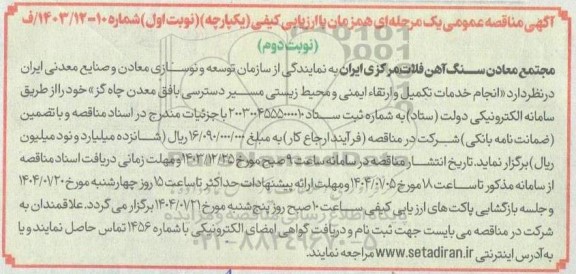 آگهی مناقصه عمومی یک مرحله‌ای همزمان با ارزیابی کیفی (یکپارچه) (نوبت اول) شماره ۱۰-۱۴۰۳/۱۲/ف
(نوبت دوم)
مجتمع معادن سنگ آهن فلات مرکزی ایران به نمایندگی از سازمان توسعه و نوسازی معادن و صنایع معدنی ایران
در نظر دارد «انجام خدمات تکمیل و ارتقاء ایمنی و محیط زیستی مسیر دسترسی بافق معدن چاه گز» خود را از طریق
سامانه الکترونیکی دولت (ستاد) به شماره ثبت ستاد ۲۰۰۳۰۰۴۵۵۵۰۰۰۰۱۰ با جزئیات مندرج در اسناد مناقصه و با تضمین
(ضمانت نامه بانکی) شرکت در مناقصه (فرآیند ارجاع کار) به مبلغ ۱۶/۰۹۰/۰۰۰/۰۰۰ ریال (شانزده میلیارد و نود میلیون
ریال) برگزار نماید. تاریخ انتشار مناقصه در سامانه ساعت ۹ صبح مورخ ۱۴۰۳/۱۲/۲۵ و مهلت زمانی دریافت اسناد مناقصه
از سامانه مذکور تا ساعت ۱۸ مورخ ۱۴۰۴/۰۱/۰۵ و مهلت ارائه پیشنهادات حداکثر تا ساعت ۱۵ روز چهارشنبه مورخ ۱۴۰۴/۰۱/۲۰
و جلسه بازگشایی پاکت های ارزیابی کیفی ساعت ۱۰ صبح روز پنج شنبه مورخ ۱۴۰۴/۰۱/۲۱ برگزار می گردد. علاقمندان به
شرکت در مناقصه می بایست جهت ثبت نام و دریافت گواهی امضای الکترونیکی با شماره ۱۴۵۶ تماس حاصل نمایند و یا
به آدرس اینترنتی www.setadiran.ir مراجعه نمایند.
۰۲۱-۸۸۳۴۹۶۷۰-۵